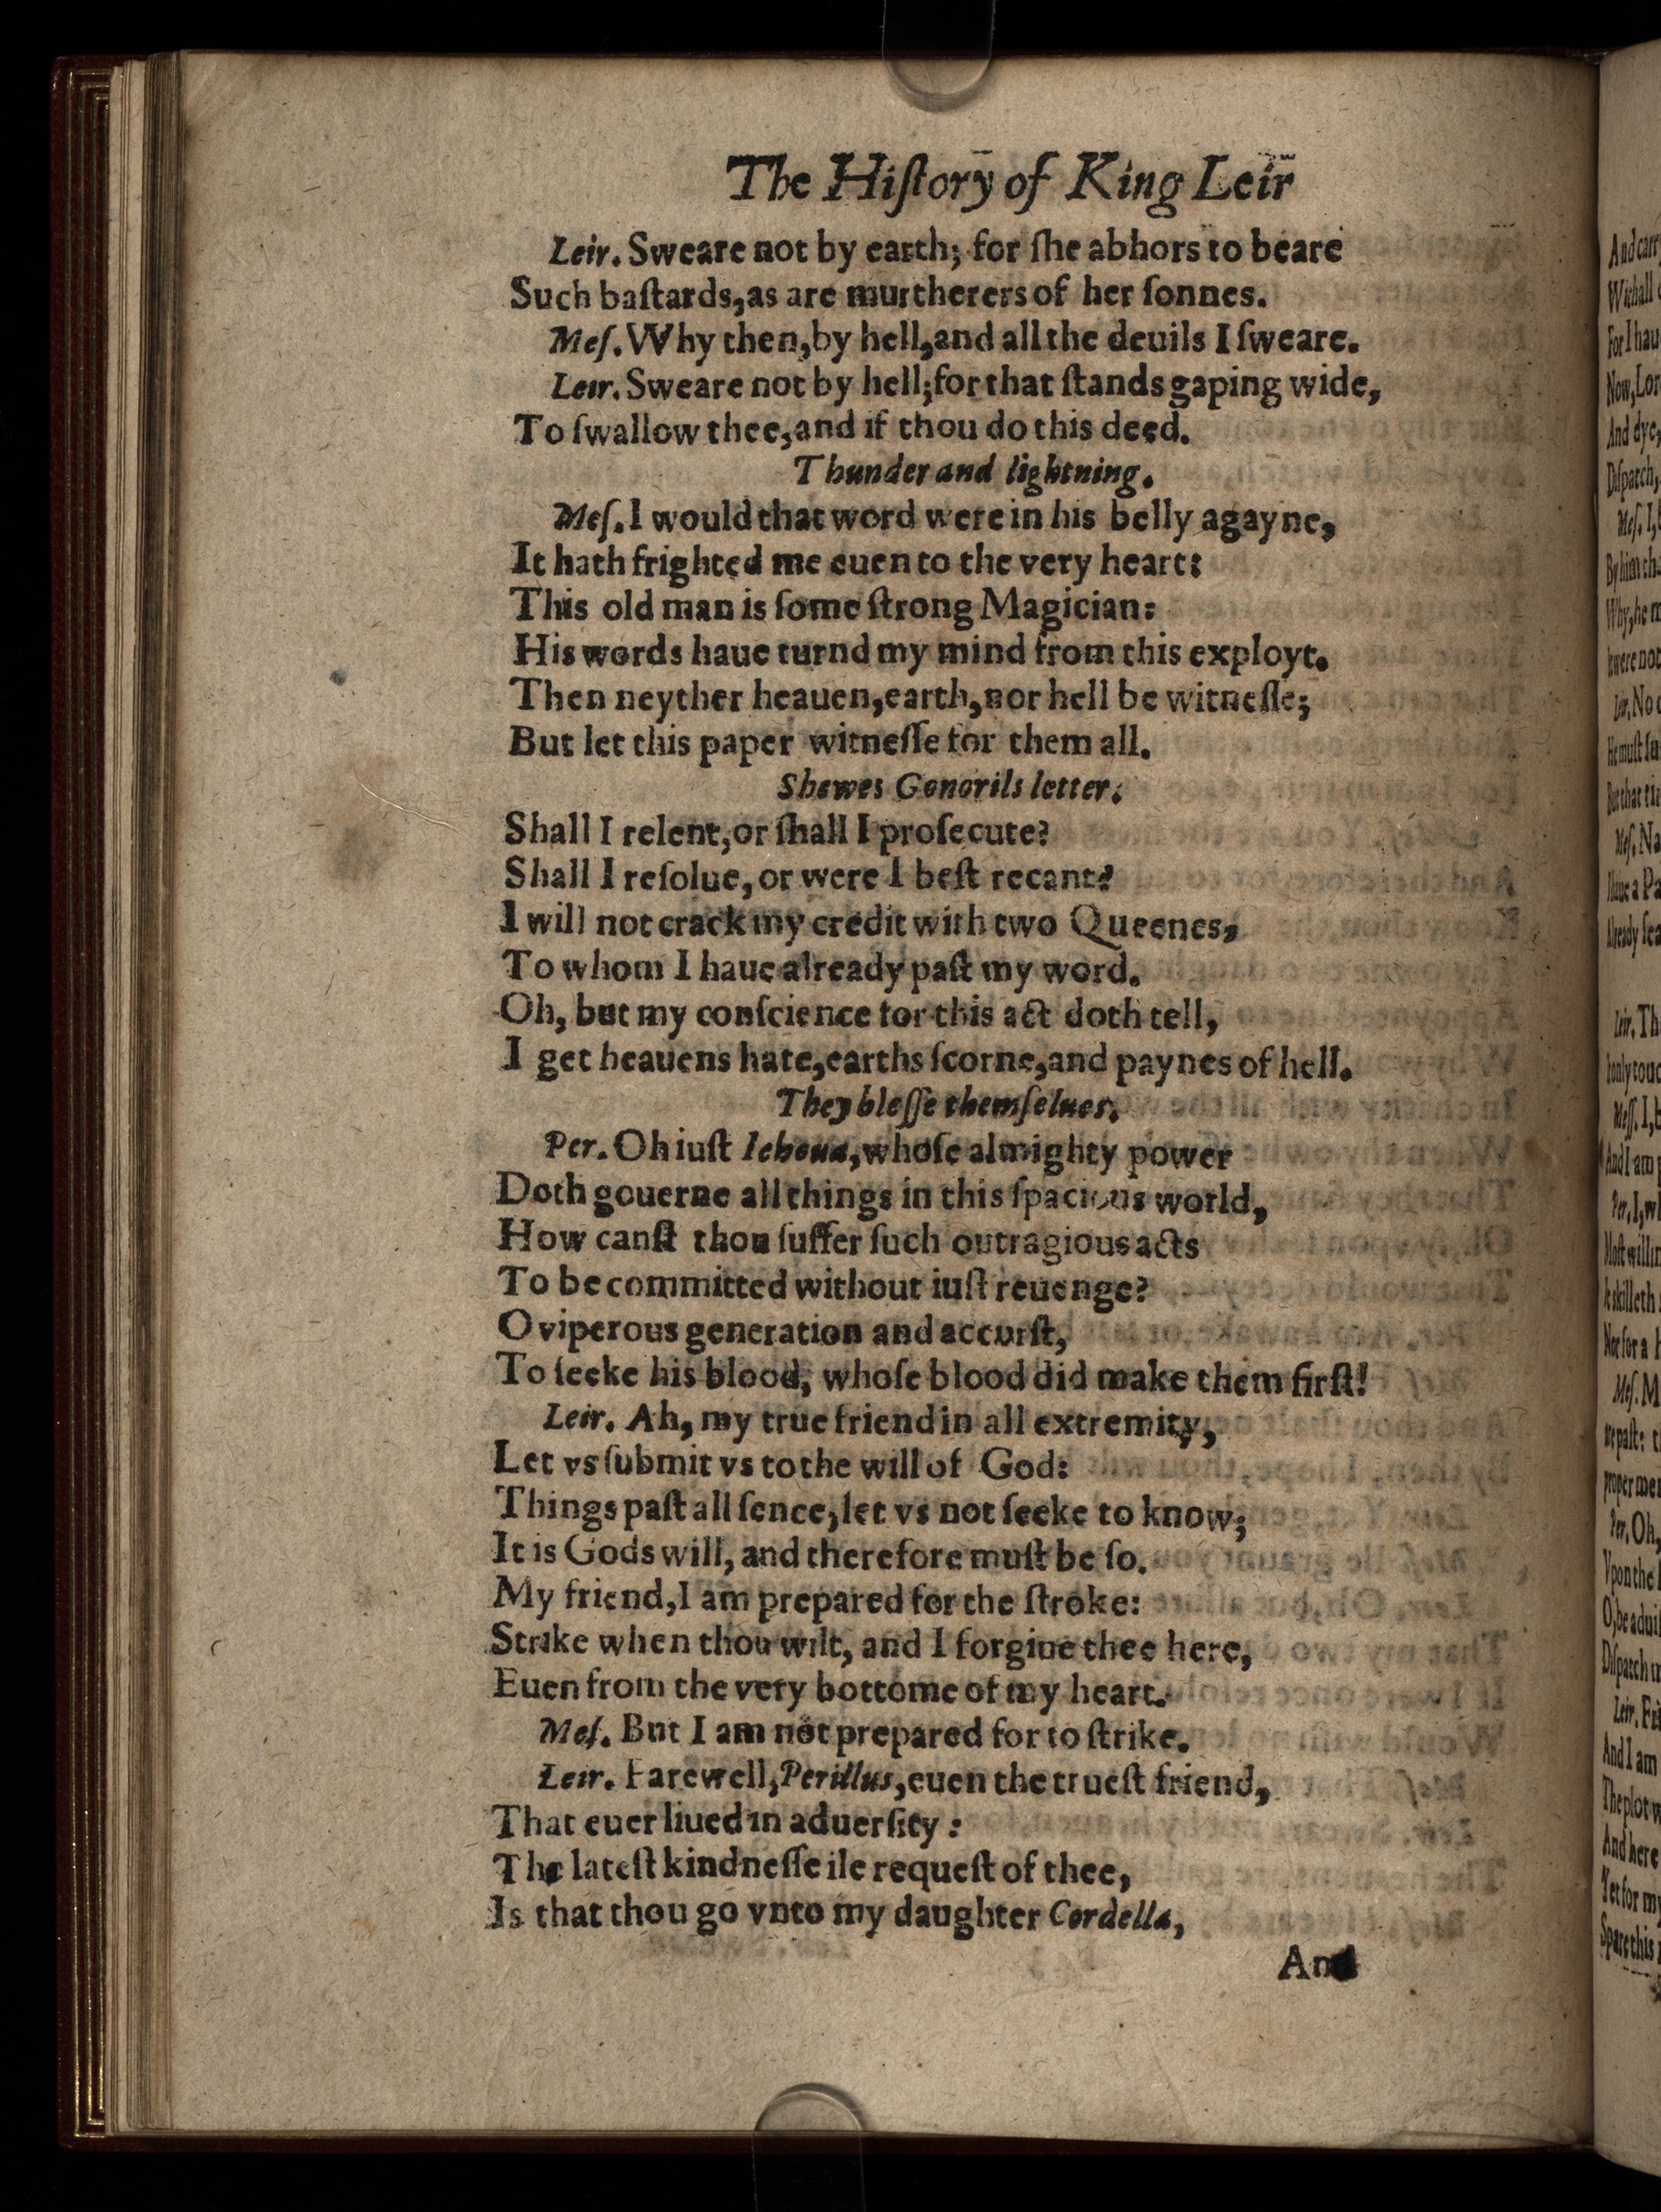 The Hiſtory of King Leir
Leir. Sweare not by earth; for ſhe abhors to beare
Such baſtards, as are murtherers of her ſonnes.
Meſ. Why then, by hell, and all the deuils I ſweare.
Leir. Sweare not by hell; for that ſtands gaping wide,
To ſwallow thee, and if thou do this deed.
Thunder and lightning.
Meſ. I would that word were in his belly agayne,
It hath frighted me euen to the very heart:
This old man is ſome ſtrong Magician:
His words haue turnd my mind from this exployt.
Then neyther heauen, earth, nor hell be witneſſe;
But let this paper witneſſe for them all.
Shewes Gonorils letter.
Shall I relent, or ſhall I proſecute?
Shall I reſolue, or were I beſt recant?
I will not crack my credit with two Queenes,
To whom I haue already paſt my word.
Oh, but my conſcience for this act doth tell,
I get heauens hate, earths ſcorne, and paynes of hell.
They bleſſe themſelues.
Per. Oh iuſt Iehoua, whoſe almighty power
Doth gouerne all things in this ſpacious world,
How canſt thou ſuffer ſuch outragious acts
To be committed without iuſt reuenge?
O viperous generation and accurſt,
To ſeeke his blood, whoſe blood did make them firſt!
Leir. Ah, my true friend in all extremity,
Let vs ſubmit vs to the will of God:
Things paſt all ſence, let vs not ſeeke to know;
It is Gods will, and therefore muſt be ſo.
My friend, I am prepared for the ſtroke:
Strike when thou wilt, and I forgiue thee here,
Euen from the very bottome of my heart.
Meſ. But I am not prepared for to ſtrike.
Leir. Farewell, Perillus, euen the trueſt friend,
That euer liued in aduerſity:
The lateſt kindneſſe ile requeſt of thee,
Is that thou go vnto my daughter Cordella,
And